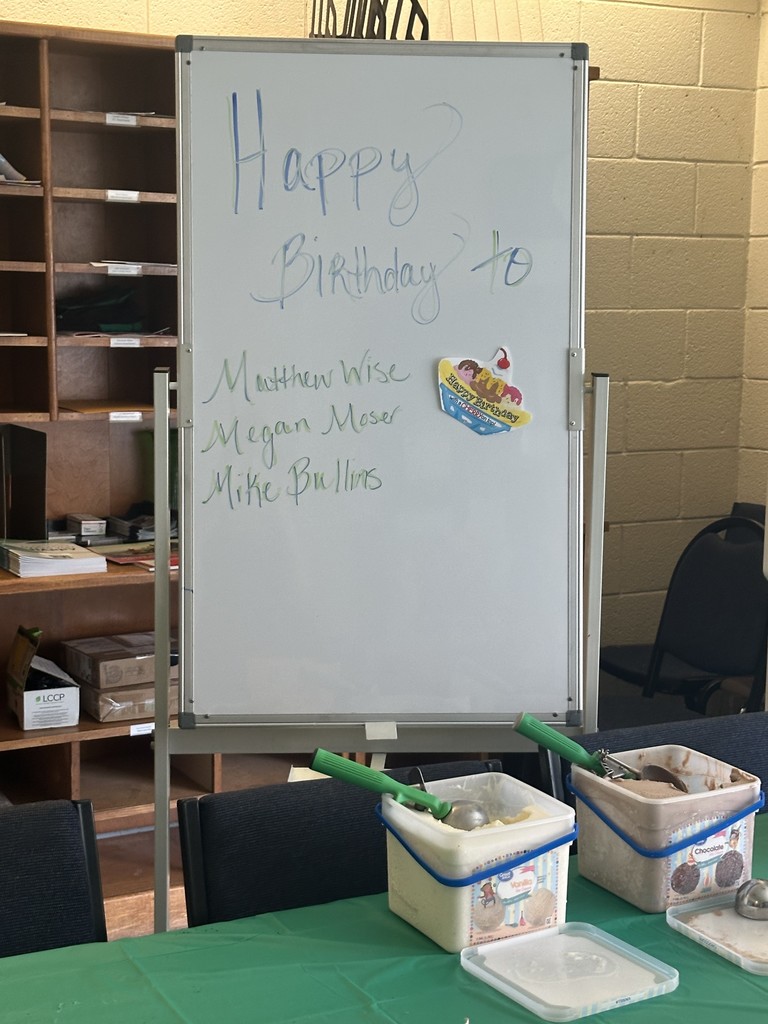 Happy
Birthday to
Matthew Wise
Megan Moser
Mike Bullins
Happy Birthday
LCCP
Vanilla
Chocolate